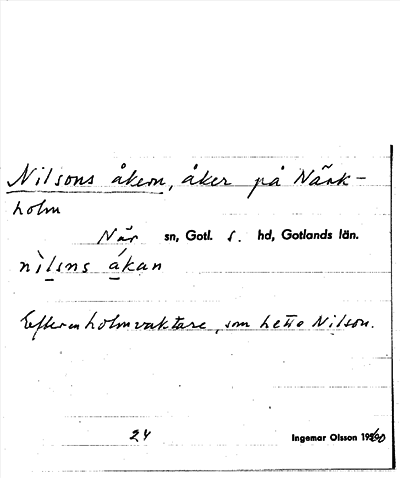 Nilsons åkern, åker på Närk-
holm
När sn, Gotl. S. hd, Gotlands län.
nìlsns ákan
Efter en holmvaktare, som hette Nilson.
24 Ingemar Olsson 1960